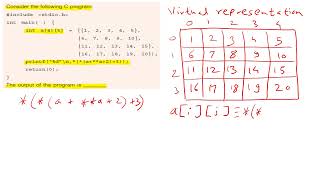 Consider the following C program
#include <stdio.h>
int main( ) {
int a[4][5] = {{1, 2, 3, 4, 5},
{6, 7, 8, 9, 10},
{11, 12, 13, 14, 15},
{16, 17, 18, 19, 20}};
printf("%d\n,*(*(a+**a+2)+3));
return(0);
}
The output of the program is
*(*(a + **a + 2) + 3)
Virtual representation
0 1 2 3 4
0 1 2 3 4 5
1 6 7 8 9 10
2 11 12 13 14 15
3 16 17 18 19 20
a[i][j] ≡ *(*